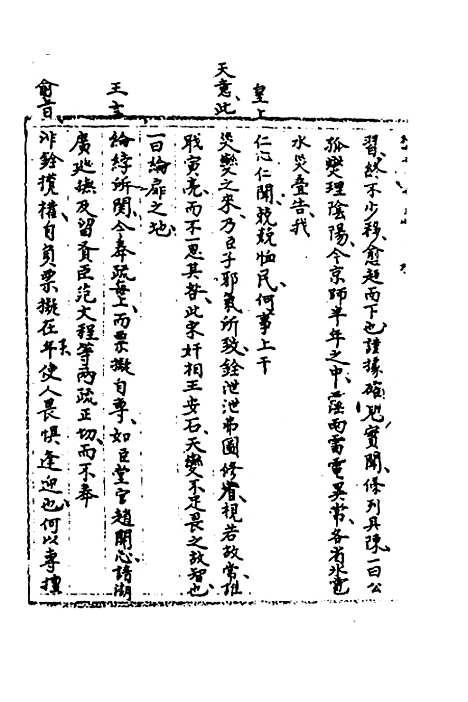 習終不少移愈趨而下也謹據確見實聞條列具陳一曰公
孤燮理陰陽今京師半年之中霪雨雷電異常各省水雹
水災疊告我
皇上
仁心仁聞兢兢恤民何事上干
天意此
災變之來乃臣子邪氣所致銓泄泄弗圖修省視若故常誰
戕寅亮而不思其咎此宋奸相王安石天變不足畏之故智也
一曰綸扉之地
王言
綸綍所關今奉疏每上而票擬自專如臣堂官趙開心請湖
廣巡撫及留賢臣范文程等兩疏正切而不奉
俞旨
非銓攬權自負票擬在手年使人畏懼逢迎也何以專擅